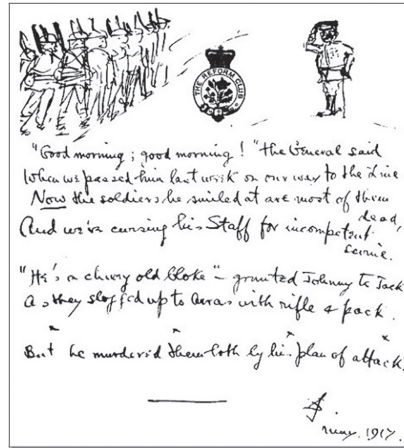 THE REFORM CLUB
"Good morning ; good morning ! " the General said
When we passed him last week on our way to the Line
Now the soldiers he smiled at are most of them
dead,
And we're cursing his Staff for incompetent
swine.
"He's a cheery old bloke" – grunted Johnny to Jack
As they slogged up to Arras with rifle & pack.
But he murder'd them both by his plan of attack.
1917.